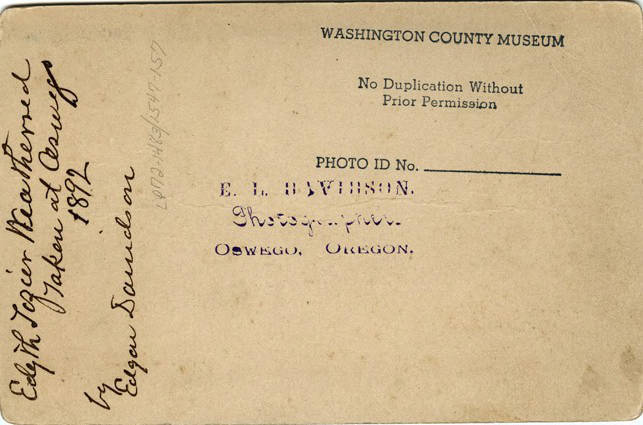 WASHINGTON COUNTY MUSEUM
No Duplication Without
Prior Permission
PHOTO ID No.
E. L. DAVIDSON.
Photographer.
OSWEGO, OREGON.
Edyth Tozier Weatherred
Taken at Oswego
1892
by
Edgar Davidson